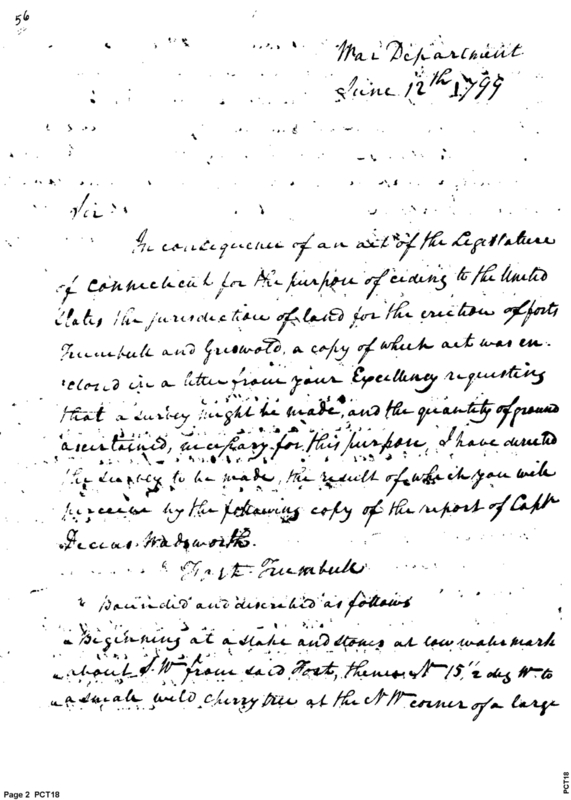 56
War Department
June 12th 1799
Sir
In consequence of an act of the Legislature
of Connecticut for the purpose of ceding to the United
States the jurisdiction of land for the erection of forts
Trumbull and Griswold, a copy of which act was en-
closed in a letter from your Excellency requesting
that a survey might be made, and the quantity of ground
ascertained, necessary for this purpose, I have directed
the survey to be made, the result of which you will
perceive by the following copy of the report of Capt
Decius Wadsworth.
" Fort Trumbull
" Bounded and described as follows
" Beginning at a stake and stones at low water mark
" about S. W from said Fort, thence N 15 1/2 deg W to
" a small wild cherry tree at the N W corner of a large
Page 2 PCT18
PCT18